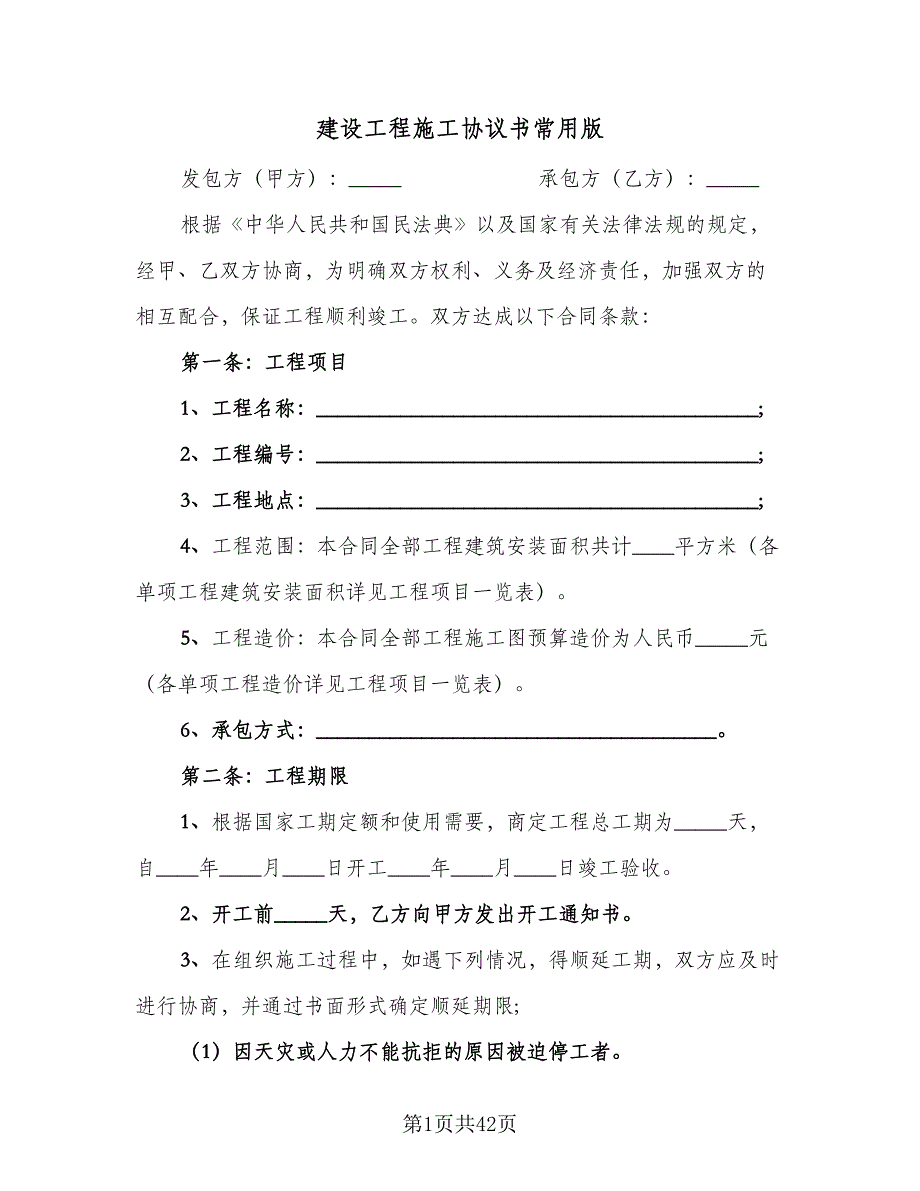 建设工程施工协议书常用版
发包方（甲方）：_____ 承包方（乙方）：_____
根据《中华人民共和国民法典》以及国家有关法律法规的规定，
经甲、乙双方协商，为明确双方权利、义务及经济责任，加强双方的
相互配合，保证工程顺利竣工。双方达成以下合同条款：
第一条：工程项目
1、工程名称：__________________________________________;
2、工程编号：__________________________________________;
3、工程地点：__________________________________________;
4、工程范围：本合同全部工程建筑安装面积共计____平方米（各
单项工程建筑安装面积详见工程项目一览表）。
5、工程造价：本合同全部工程施工图预算造价为人民币_____元
（各单项工程造价详见工程项目一览表）。
6、承包方式：______________________________________。
第二条：工程期限
1、根据国家工期定额和使用需要，商定工程总工期为_____天，
自____年____月____日开工____年____月____日竣工验收。
2、开工前_____天，乙方向甲方发出开工通知书。
3、在组织施工过程中，如遇下列情况，得顺延工期，双方应及时
进行协商，并通过书面形式确定顺延期限;
（1）因天灾或人力不能抗拒的原因被迫停工者。
第1页共42页